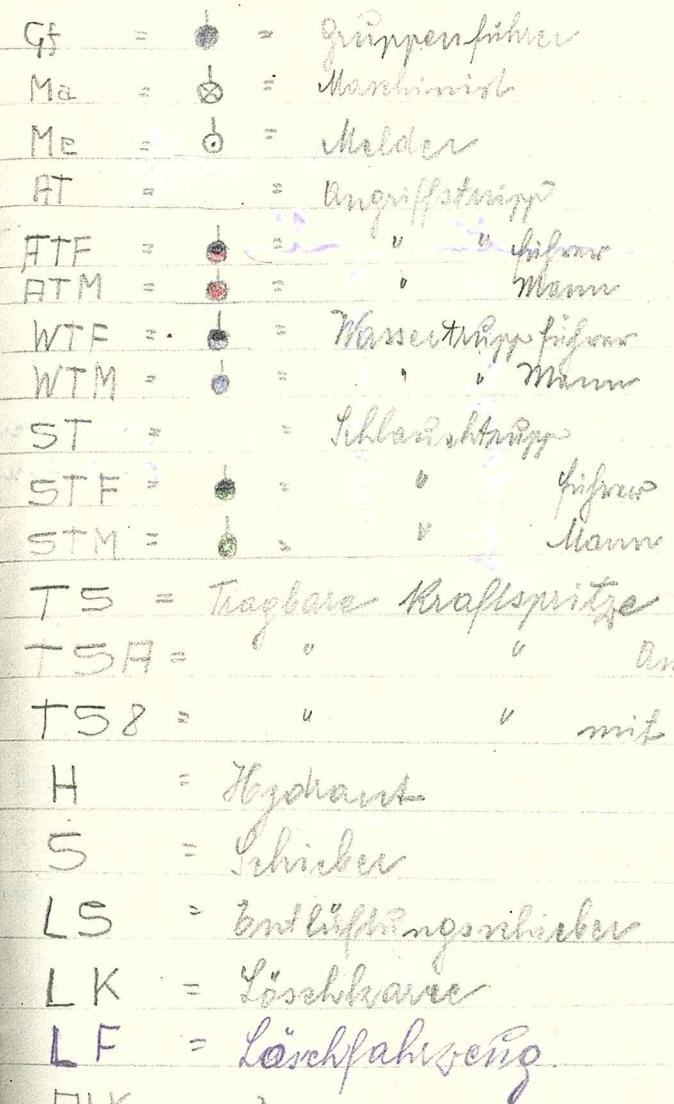 Gf = = Gruppenführer
Ma = = Maschinist
Me = = Melder
AT = = Angriffstrupp
ATF = = " " führer
ATM = = " Mann
WTF = = Wassertruppführer
WTM = = " " Mann
ST = = Schlauchtrupp
STF = = " führer
STM = = " Mann
TS = Tragbare Kraftspritze
TSA = " " An
TS8 = " " mit
H = Hydrant
S = Schieber
LS = Entlüftungsschieber
LK = Löschkarre
LF = Löschfahrzeug.